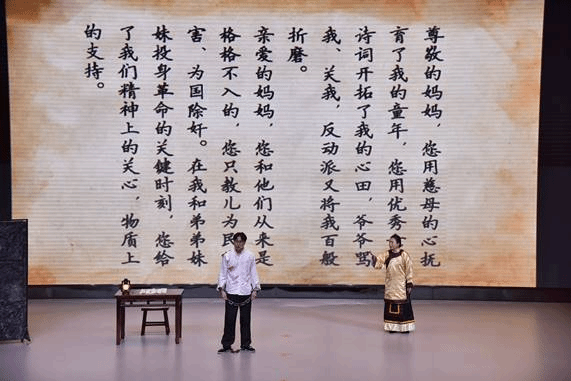 尊敬的妈妈，您用慈母的心抚
育了我的童年，您用优秀
诗词开拓了我的心田，爷爷骂
我、关我，反动派又将我百般
折磨。
亲爱的妈妈，您和他们从来是
格格不入的，您只教儿为民
害、为国除奸。在我和弟弟妹
妹投身革命的关键时刻，您给
了我们精神上的关心，物质上
的支持。